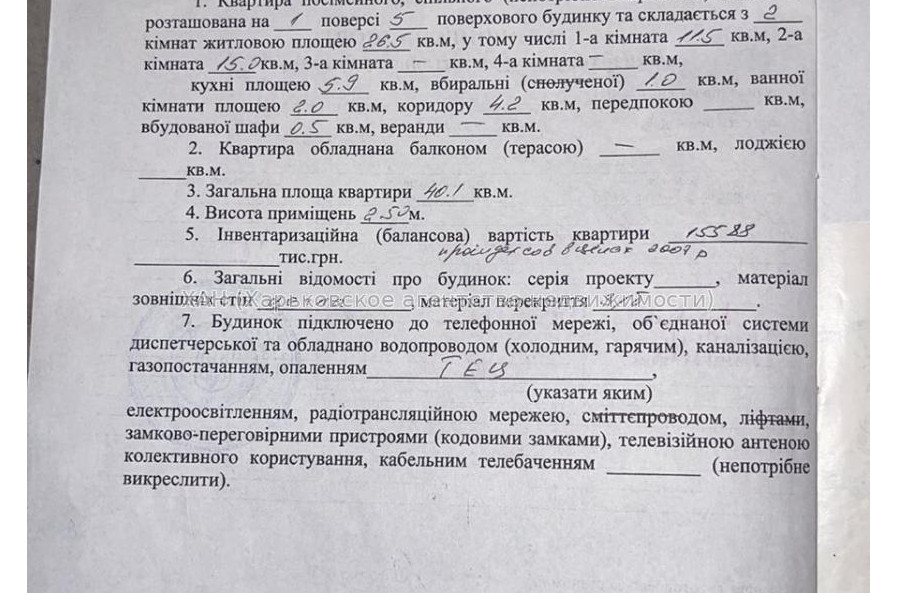 1. Квартира посімейного, спільного
розташована на 1 поверсі 5 поверхового будинку та складається з 2
кімнат житловою площею 26.5 кв.м, у тому числі 1-а кімната 11.5 кв.м, 2-а
кімната 15.0 кв.м, 3-а кімната — кв.м, 4-а кімната — кв.м,
кухні площею 5.9 кв.м, вбиральні (сполученої) 1.0 кв.м, ванної
кімнати площею 2.0 кв.м, коридору 4.2 кв.м, передпокою ____ кв.м,
вбудованої шафи 0.5 кв.м, веранди — кв.м.
2. Квартира обладнана балконом (терасою) — кв.м, лоджією
____кв.м.
3. Загальна площа квартири 40.1 кв.м.
4. Висота приміщень 2.50м.
5. Інвентаризаційна (балансова) вартість квартири 15588
____тис.грн. 2007 р
6. Загальні відомості про будинок: серія проекту____, матеріал
зовнішніх стін ____, матеріал перекриття ____.
ХАН (Харьковское агентство недвижимости)
7. Будинок підключено до телефонної мережі, об`єднаної системи
диспетчерської та обладнано водопроводом (холодним, гарячим), каналізацією,
газопостачанням, опаленням ТЕЦ,
(указати яким)
електроосвітленням, радіотрансляційною мережею, сміттєпроводом, ліфтами,
замково-переговірними пристроями (кодовими замками), телевізійною антеною
колективного користування, кабельним телебаченням ____ (непотрібне
викреслити).